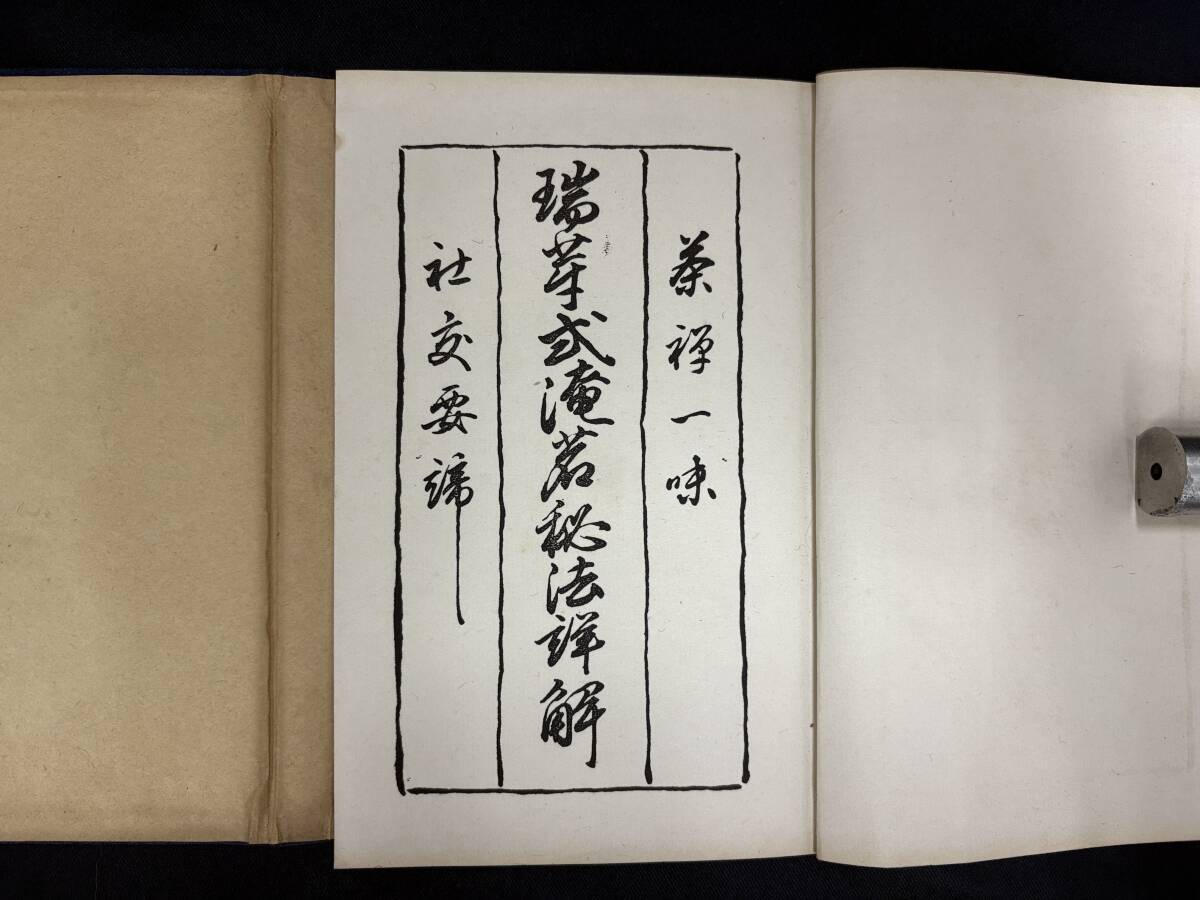 茶禅一味
瑞芽式淹茗秘法詳解
社交要諦